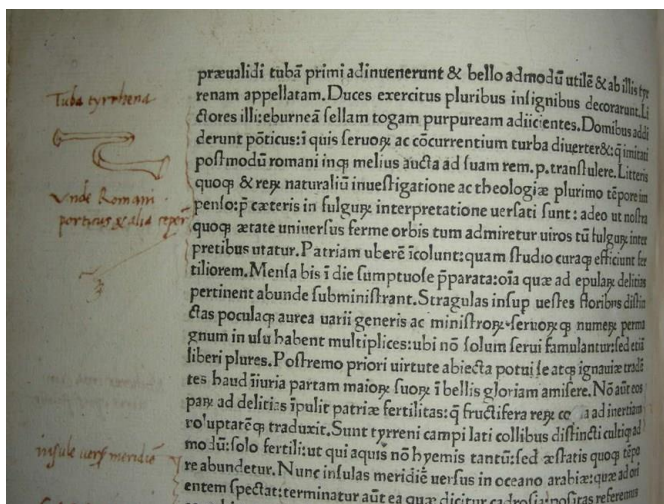 Tuba tyrrhena
Unde Romani
porticus & alia reper
insule uersus meridiē
præualidi tubā primi adinuenerunt & bello admodū utilē & ab illis tyr
renam appellatam. Duces exercitus pluribus insignibus decorarunt. Li
ctores illi: eburneā sellam togam purpuream adiicientes. Domibus addi
derunt pōticus: ī quis seruoꝝ ac cōcurrentium turba diuerteret: q̄ imitati
postmodū romani inq; melius aucta ad suam rem. p. transtulere. Litteris
quoq; & reꝝ naturaliū inuestigatione ac theologiæ plurimo tēpore im
penso: p̄ cæteris in fulguꝝ interpretatione uersati sunt: adeo ut nostra
quoq; ætate uniuersus ferme orbis tum admiretur uiros tū fulguꝝ inter
pretibus utatur. Patriam uberē īcolunt: quam studio curaq; efficiunt fer
tiliorem. Mensa bis ī die sumptuose p̄parata: oīa quæ ad epulaꝝ delitias
pertinent abunde subministrant. Stragulas insup uestes floribus distin
ctas poculaq; aurea uarii generis ac ministroꝝ seruoꝝq; numeꝝ perma
gnum in usu habent multiplices: ubi nō solum serui famulantur: sed etiā
liberi plures. Postremo priori uirtute abiecta potui se atq; ignauiæ tradē
tes haud īiuria partam maioꝝ suoꝝ ī bellis gloriam amisere. Nō aūt eos
paꝝ ad delitias īpulit patriæ fertilitas: q̄ fructifera reꝝ ad inertiam
uoluptatēq; traduxit. Sunt tyrreni campi lati collibus distincti cultiq; ad
modū: solo fertili: ut qui aquis nō hyemis tantū: sed æstatis quoq; tēpo
re abundetur. Nunc insulas meridiē uersus in oceano arabiæ: quæ ad ori
entem spectat: terminatur aūt ea quæ dicitur cadrosia: positas referemus